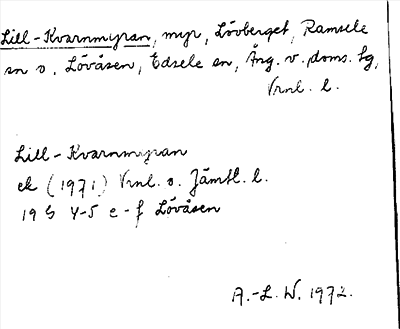 Lill-Kvarnmyran, myr, Lövberget, Ramsele
sn o. Lövåsen, Edsele sn, Ång. v. doms. tg,
Vrnl. l.
Lill-Kvarnmyran
ek (1971) Vrnl. o. Jämtl. l.
19 G 4-5 e-f Lövåsen
A.-L. W. 1972.